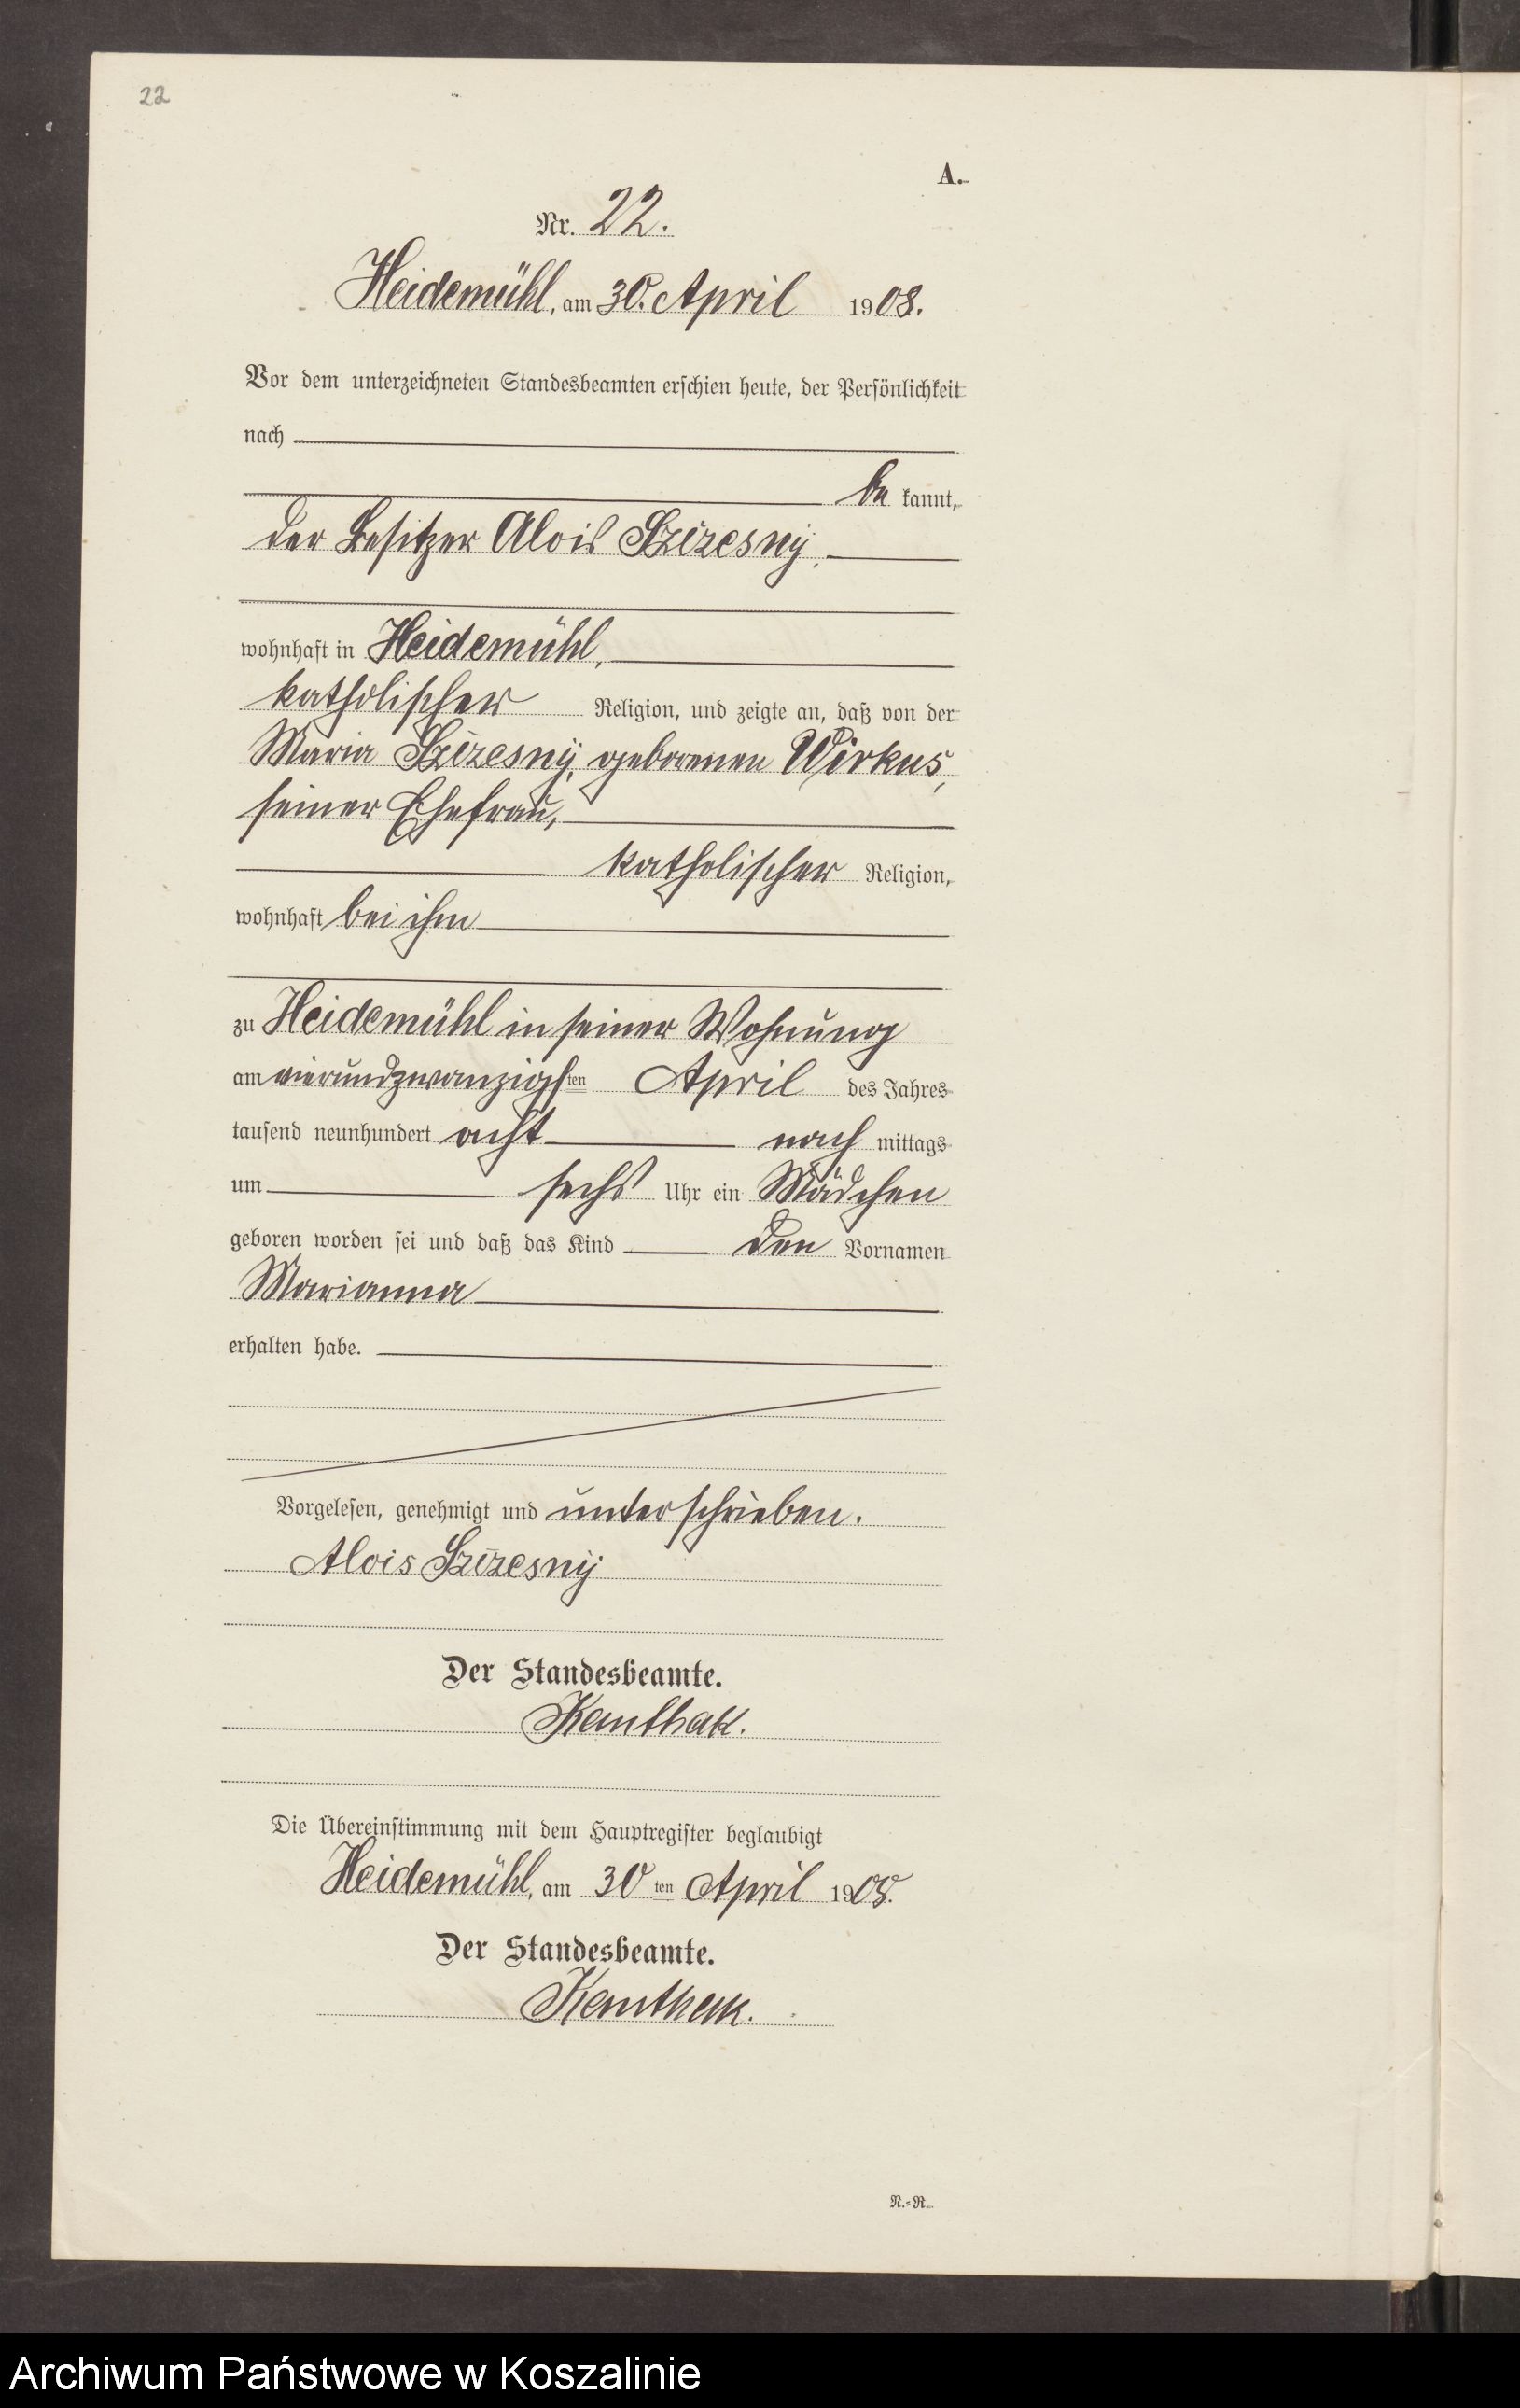 22
A.
Nr. 22.
Heidemühl, am 30. April 1908.
Vor dem unterzeichneten Standesbeamten erschien heute, der Persönlichkeit
nach
be kannt,
der Besitzer Alois Szizesny,
wohnhaft in Heidemühl,
katholischer Religion, und zeigte an, daß von der
Maria Szizesny, geborenen Wirkus,
seiner Ehefrau,
katholischer Religion,
wohnhaft bei ihm
zu Heidemühl in seiner Wohnung
am vierundzwanzigsten April des Jahres
tausend neunhundert acht nach mittags
um sechs Uhr ein Mädchen
geboren worden sei und daß das Kind den Vornamen
Marianna
erhalten habe.
Vorgelesen, genehmigt und unterschrieben.
Alois Szizesny
Der Standesbeamte.
Die Übereinstimmung mit dem Hauptregister beglaubigt
Heidemühl, am 30 ten April 1908.
Der Standesbeamte.
N.=R.
Archiwum Państwowe w Koszalinie